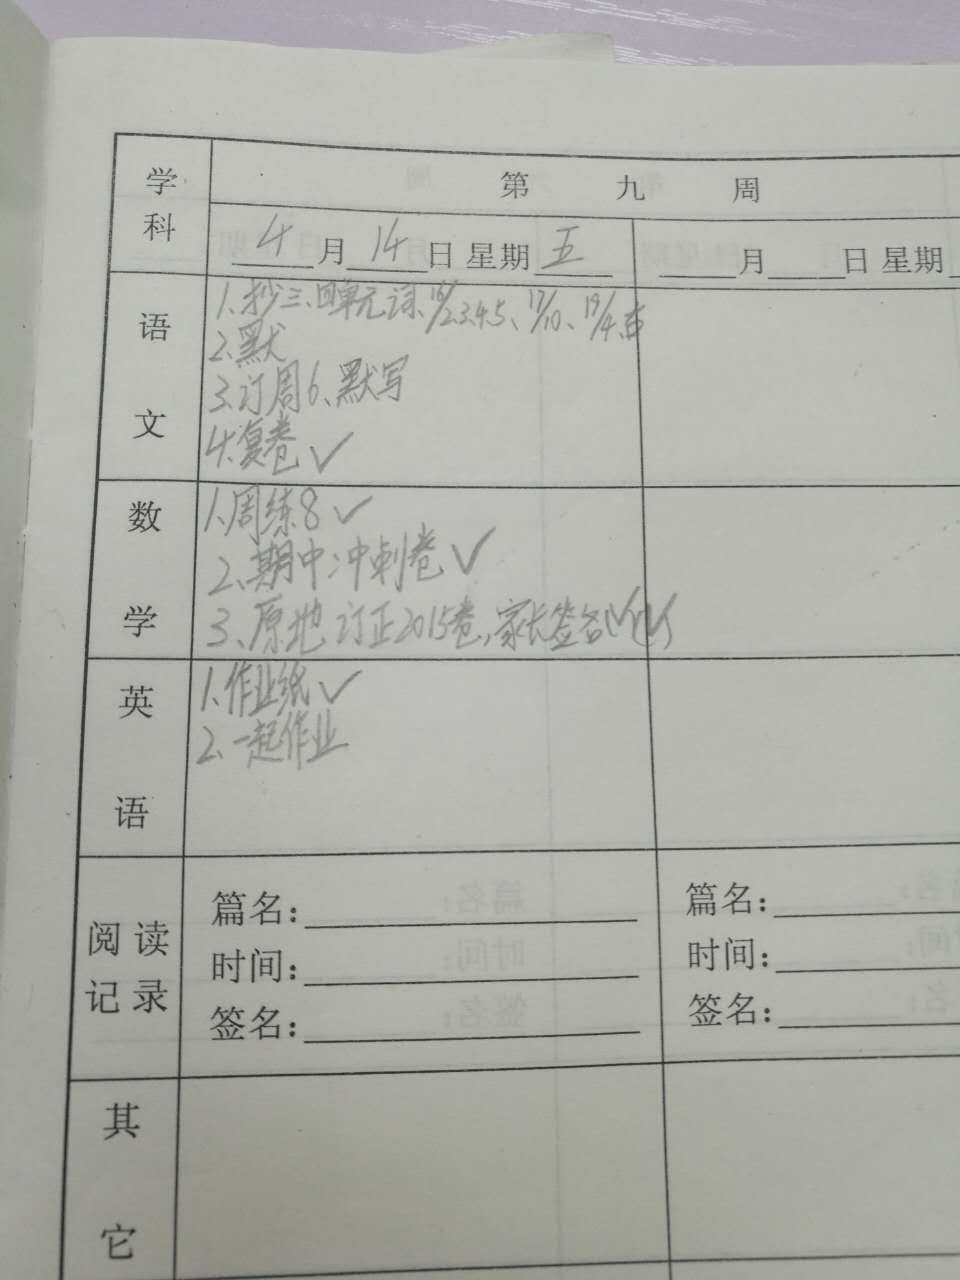 学科
第 九 周
4月14日 星期五
月 日 星期
语文
1.抄三、四单元词、16/2.3.4.5、17/10、19/4.5
2.默
3.订周6、默写
4.复卷 ✓
数学
1.周练8 ✓
2.期中冲刺卷 ✓
3、原地 订正2015卷,家长签名
英语
1.作业纸 ✓
2.一起作业
阅读记录
篇名: 篇名:
时间: 时间:
签名: 签名:
其它